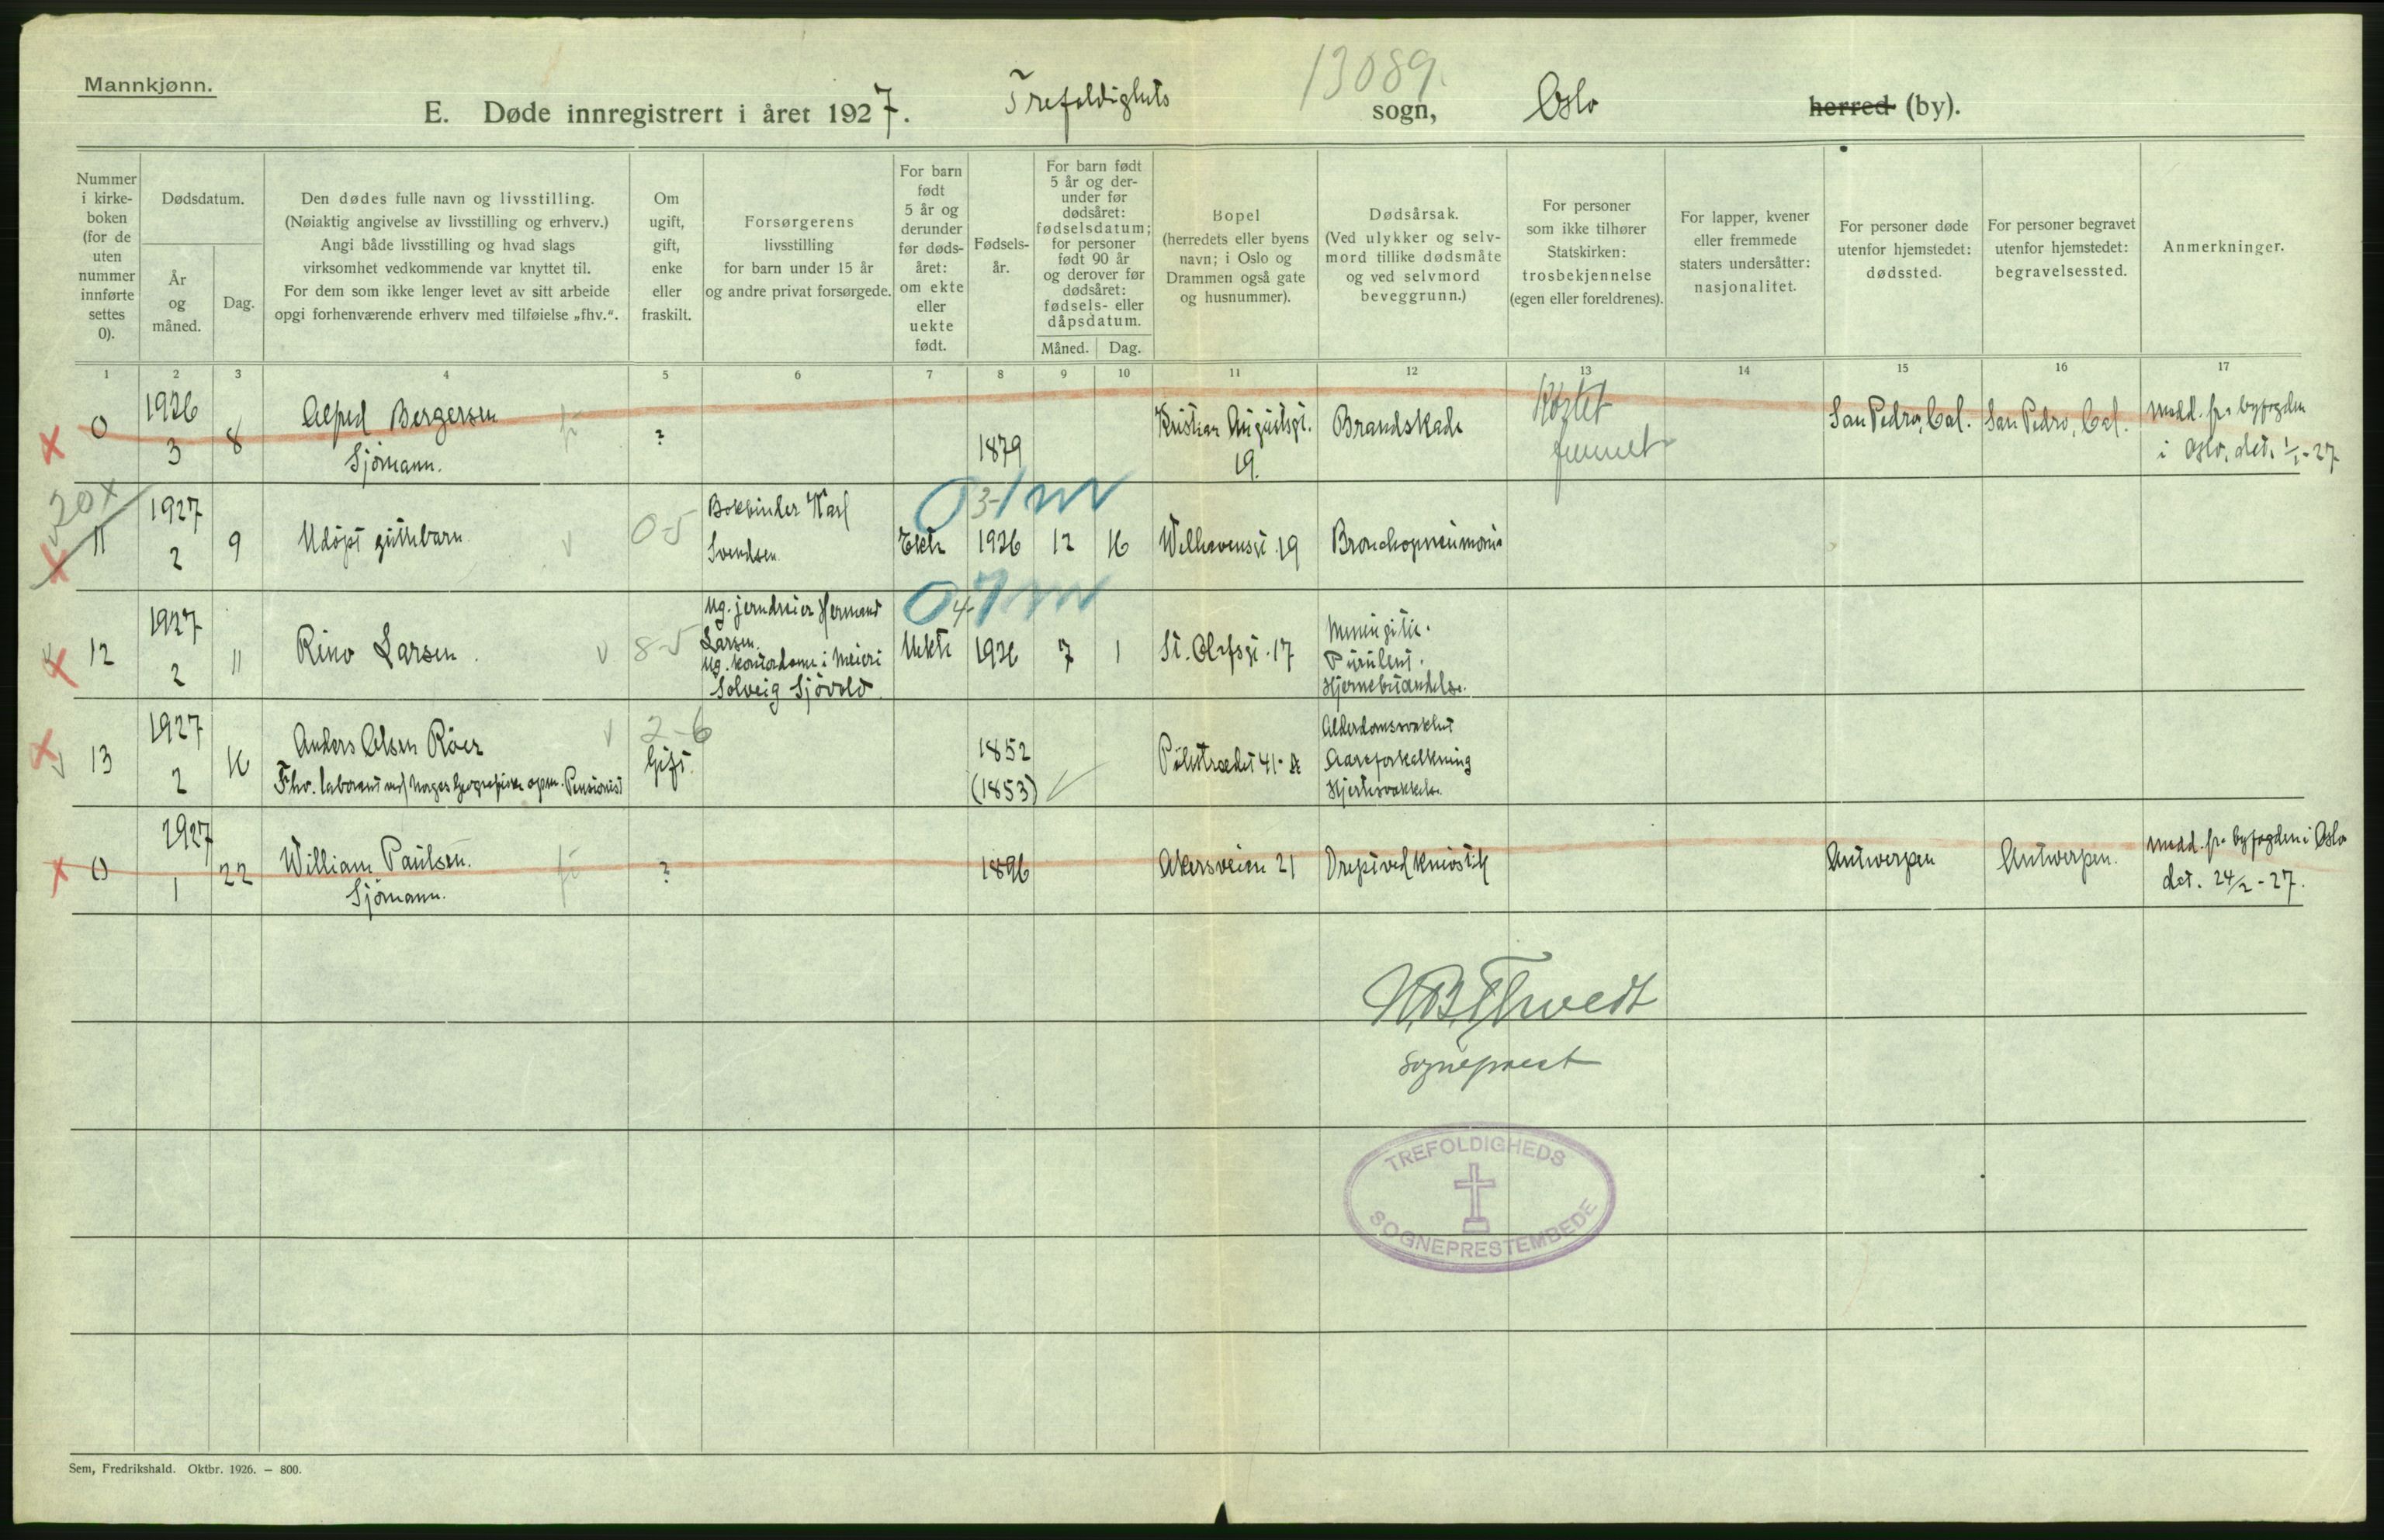 Mannkjønn.
13089.
E. Døde innregistrert i året 1927. Trefoldighets sogn, Oslo herred (by).
Nummer i kirke-boken (for de uten nummer innførte settes 0).
Dødsdatum.
År og måned.
Dag.
Den dødes fulle navn og livsstilling.
(Nøiaktig angivelse av livsstilling og erhverv.)
Angi både livsstilling og hvad slags
virksomhet vedkommende var knyttet til.
For dem som ikke lenger levet av sitt arbeide
opgi forhenværende erhverv med tilføielse „fhv.“.
Om ugift, gift, enke eller fraskilt.
Forsørgerens
livsstilling
for barn under 15 år
og andre privat forsørgede.
For barn født 5 år og derunder før døds-året: om ekte eller uekte født.
Fødsels-år.
For barn født 5 år og der-under før dødsåret: fødselsdatum; for personer født 90 år og derover før dødsåret: fødsels- eller dåpsdatum.
Måned. Dag.
Bopel
(herredets eller byens
navn; i Oslo og
Drammen også gate
og husnummer).
Dødsårsak.
(Ved ulykker og selv-
mord tillike dødsmåte
og ved selvmord
beveggrunn.)
For personer
som ikke tilhører
Statskirken:
trosbekjennelse
(egen eller foreldrenes).
For lapper, kvener
eller fremmede
staters undersåtter:
nasjonalitet.
For personer døde
utenfor hjemstedet:
dødssted.
For personer begravet
utenfor hjemstedet:
begravelsessted.
Anmerkninger.
1 2 3 4 5 6 7 8 9 10 11 12 13 14 15 16 17
0
1926
3
8
Alfred Bergersen
Sjömann.
?
1879
Kristian Augustsgt.
19.
Brandskade
San Pedro, Cal.
San Pedro, Cal.
Medd. fra byfogden
i Oslo, det. 1/1-27
20 x
11
1927
2
9
Udöpt guttebarn
0-5
Bokbinder Karl
Svendsen.
0 3-1 m
Ekte
1926
12
16
Welhavensgt. 19
Bronchopneumoni
12
1927
2
11
Rino Larsen.
8-5
Ug. jerndreier Hermand
Larsen.
Ug. kontordame i Meieri
Solveig Sjövold.
0 4-7 m
Uekte
1926
7
1
St. Olafsgt. 17
Meningitis.
Purulent.
Hjernebetændelse.
13
1927
2
16
Anders Olsen Röer
Fhv. laborant ved Norges Geografiske opm. Pensionist
2-6
Gift.
1852
(1853)
Pilestrædet 41
Alderdomssvakhet
Aareforkalkning
Hjertesvakkelse.
0
1927
1
22
William Paulsen.
Sjömann.
?
1896
Akersveien 21
Drept ved knivstik
Antwerpen
Antwerpen.
Medd. fra byfogden i Oslo
det. 24/2-27.
Sogneprest
TREFOLDIGHEDS
SOGNEPRESTEMBEDE
Sem, Fredrikshald. Oktbr. 1926. — 800.